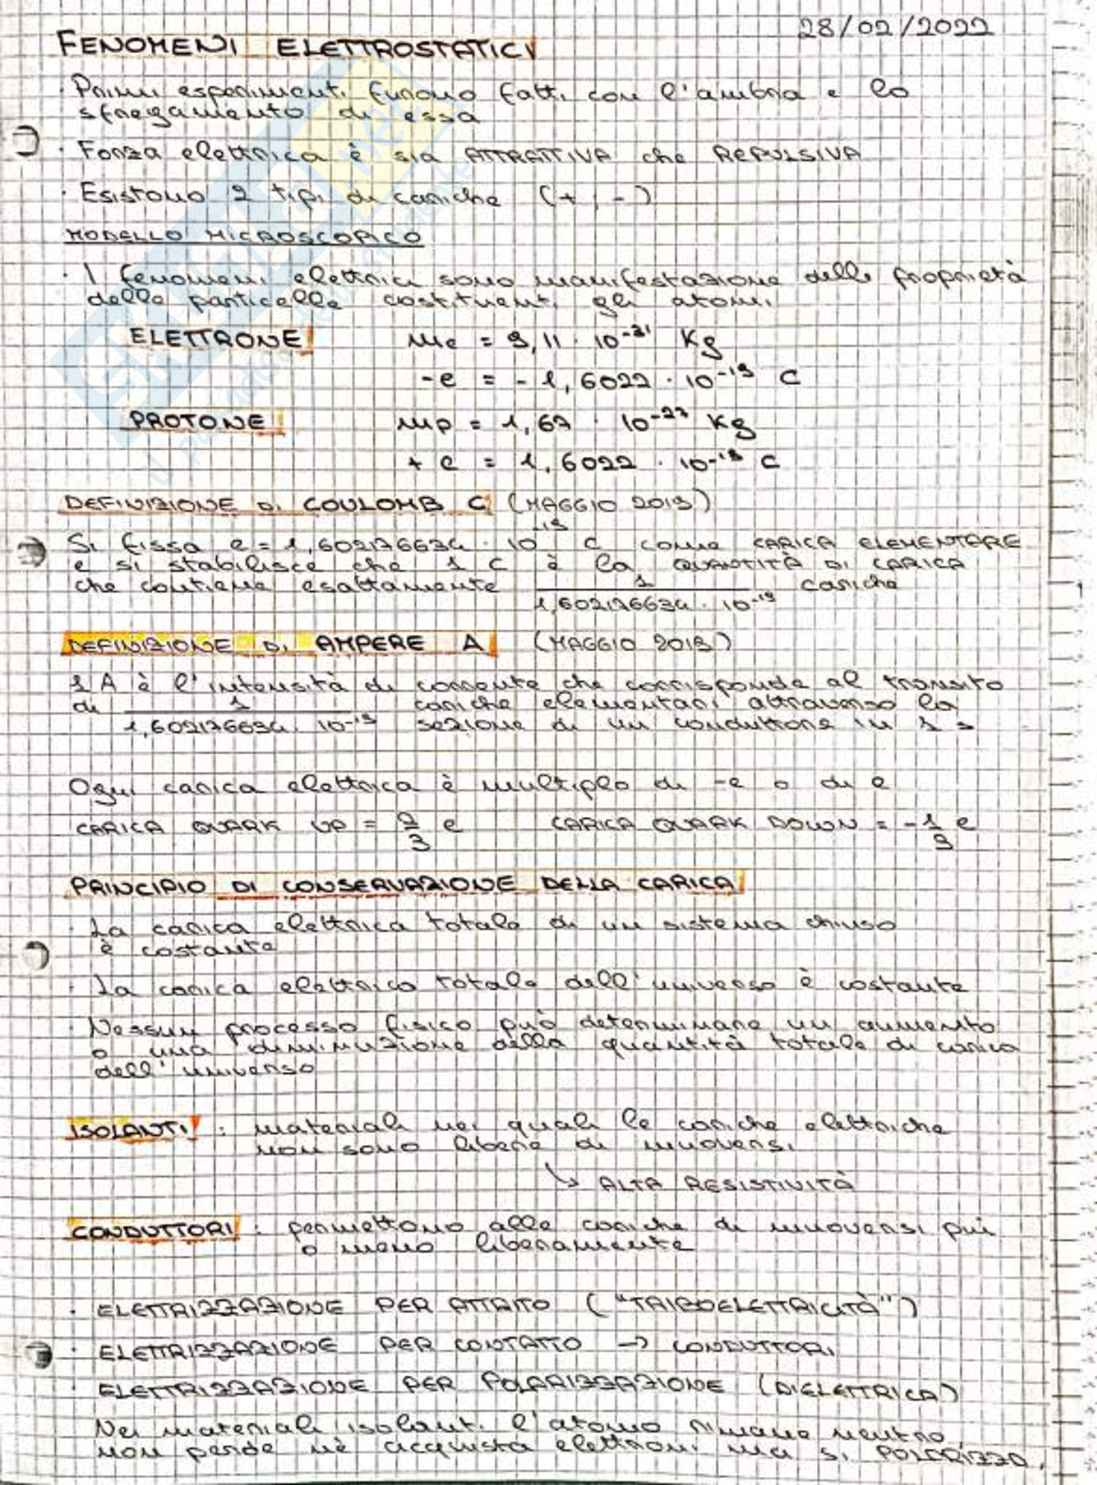 28/02/2022
FENOMENI ELETTROSTATICI
· Primi esperimenti furono fatti con l'ambra e lo
sfregamento di essa
· Forza elettrica è sia ATTRATTIVA che REPULSIVA
· Esistono 2 tipi di cariche (+, -)
MODELLO MICROSCOPICO
· I fenomeni elettrici sono manifestazione delle proprietà
delle particelle costituenti gli atomi.
ELETTRONE me = 9,11 · 10⁻³¹ Kg
-e = -1,6022 · 10⁻¹⁹ C
PROTONE mp = 1,67 · 10⁻²⁷ Kg
+e = 1,6022 · 10⁻¹⁹ C
DEFINIZIONE DI COULOMB C (MAGGIO 2019)
Si fissa e = 1,602176634 · 10⁻¹⁹ C come CARICA ELEMENTARE
e si stabilisce che 1 C è la QUANTITÀ DI CARICA
che contiene esattamente 1/(1,602176634 · 10⁻¹⁹) cariche
DEFINIZIONE DI AMPERE A (MAGGIO 2019)
1 A è l'intensità di corrente che corrisponde al transito
di 1/(1,602176634 · 10⁻¹⁹) cariche elementari attraverso la
sezione di un conduttore in 1 s
Ogni carica elettrica è multiplo di -e o di e
CARICA QUARK UP = 2/3 e CARICA QUARK DOWN = -1/3 e
PRINCIPIO DI CONSERVAZIONE DELLA CARICA
· La carica elettrica totale di un sistema chiuso
è costante
· La carica elettrica totale dell'universo è costante
· Nessun processo fisico può determinare un aumento
o una diminuzione della quantità totale di carica
dell'universo
ISOLANTI : materiali nei quali le cariche elettriche
non sono libere di muoversi
↳ ALTA RESISTIVITÀ
CONDUTTORI : permettono alle cariche di muoversi più
o meno liberamente
· ELETTRIZZAZIONE PER ATTRITO ("TRIBOELETTRICITÀ")
· ELETTRIZZAZIONE PER CONTATTO → CONDUTTORI
· ELETTRIZZAZIONE PER POLARIZZAZIONE (DIELETTRICA)
Nei materiali isolanti l'atomo rimane neutro,
non perde nè acquista elettroni ma si POLARIZZA.